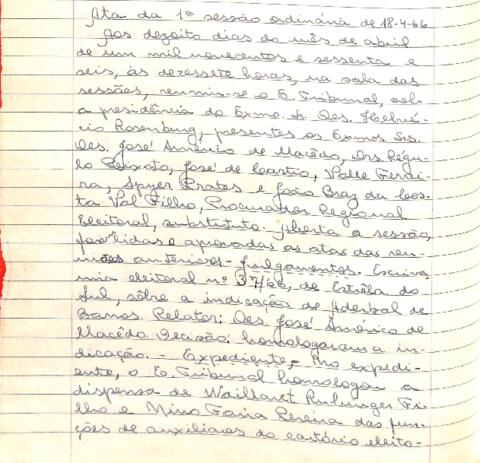 Ata da 1ª sessão ordinária de 18-4-66
Aos dezoito dias do mês de abril
de um mil novecentos e sessenta e
seis, às dezessete horas, na sala das
sessões, reuniu-se o E. Tribunal, sob
a presidência do Exmo. Sr. Des. Helvé-
cio Rosenburg, presentes os Exmos Srs.
Des. José Américo de Macêdo, Drs. Régu-
lo Peixoto, José de Castro, Valle Ferrei-
ra, Spyer Prates e João Braz da Cos-
ta Val Filho, Procurador Regional
Eleitoral, substituto. Aberta a sessão,
foram lidas e aprovadas as atas das reu-
niões anteriores - Julgamentos. Escriva-
nia eleitoral nº 37/66, de Estrêla do
Sul, sôbre a indicação de Aderbal de
Barros. Relator: Des. José Américo de
Macêdo. Decisão: homologaram a in-
dicação. - Expediente - No expedi-
ente, o E. Tribunal homologou a
dispensa de Fi-
lho e Faria Pereira das fun-
ções de auxiliares do cartório eleito-